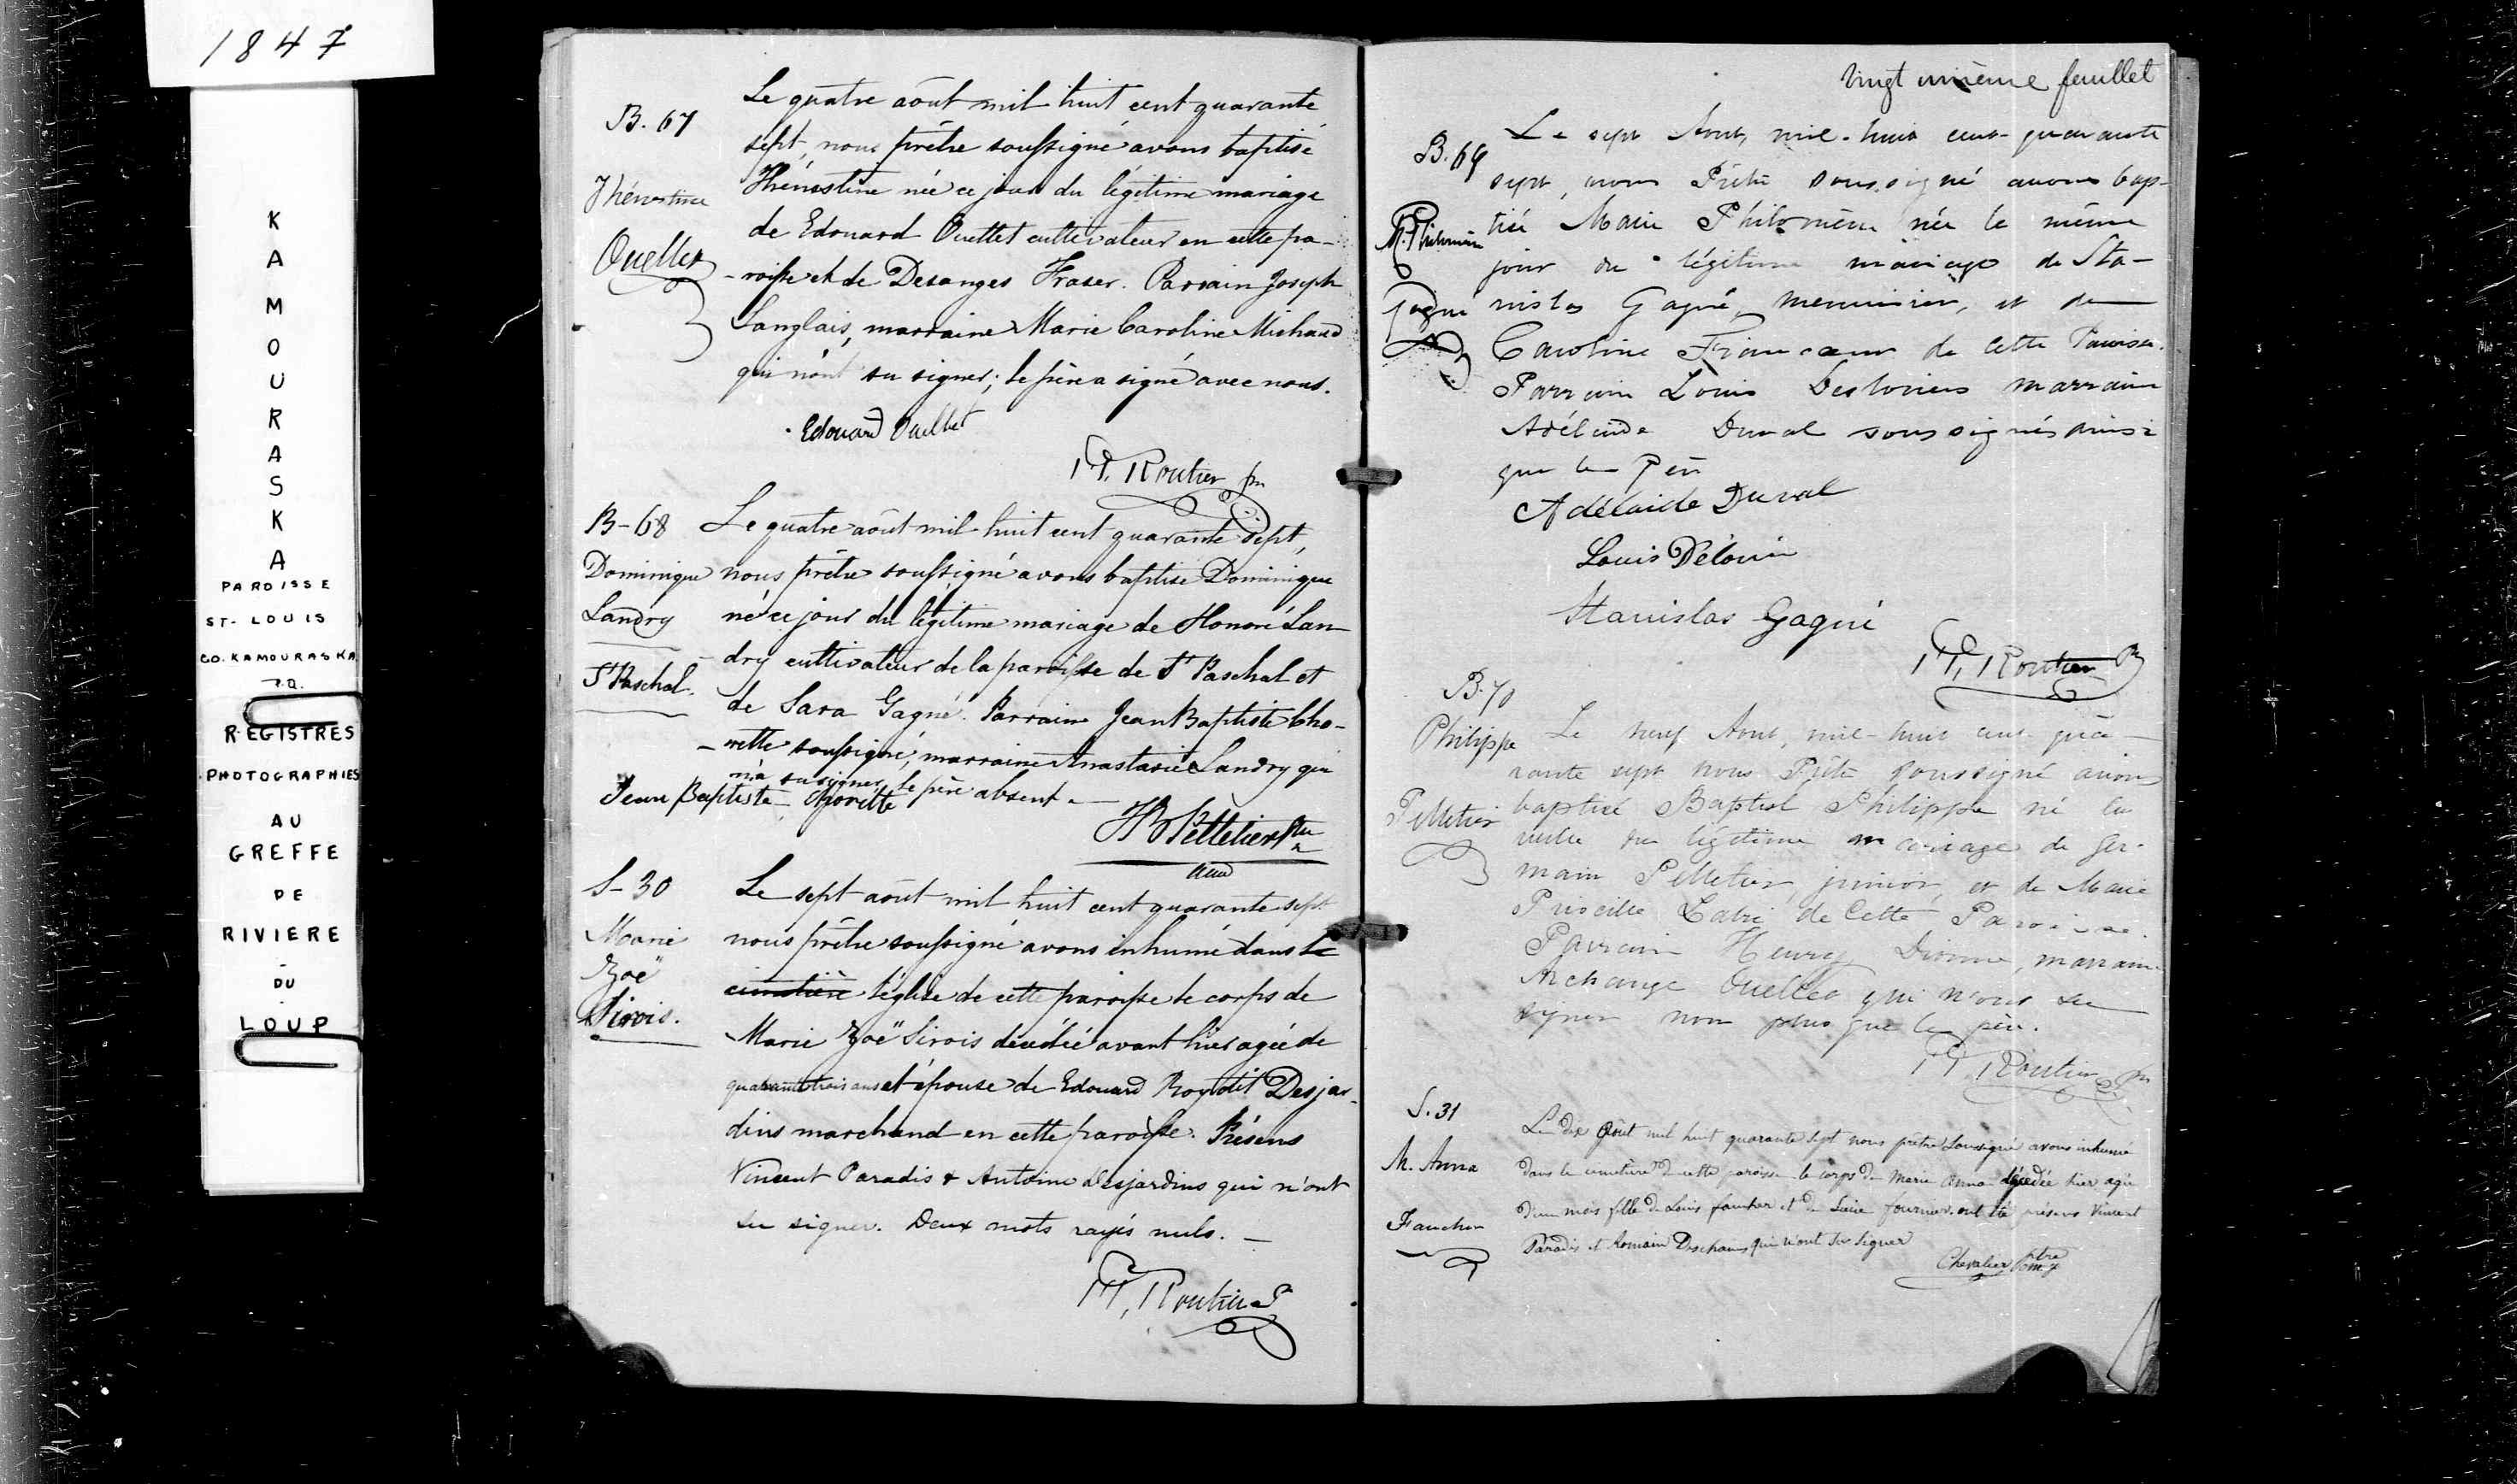 1847
KAMOURASKA
PAROISSE
ST-LOUIS
CO. KAMOURASKA
P.Q.
REGISTRES
PHOTOGRAPHIES
AU
GREFFE
DE
RIVIERE
-
DU
-
LOUP
B. 67
Thénestine
Ouellet
Le quatre août mil huit cent quarante
sept, nous prêtre soussigné avons baptisé
Thénestine née ce jour du légitime mariage
de Edouard Ouellet cultivateur en cette pa-
-roisse et de Desanges Fraser. Parrain Joseph
Langlais, marraine Marie Caroline Michaud
qui n'ont su signer; le père a signé avec nous.
Edouard Ouellet
Routier ptr
B-68
Dominique
Landry
St Paschal.
Le quatre août mil huit cent quarante sept,
nous prêtre soussigné avons baptisé Dominique
né ce jour du légitime mariage de Honoré Lan-
-dry cultivateur de la paroisse de St Paschal et
de Sara Gagné. Parrain Jean Baptiste Cho-
-rette soussigné, marraine Anastasie Landry qui
n'a su signer, le père absent.
Jean Baptiste Chorette
Pelletier Ptre
S-30
Marie
Zoë
Sirois.
Le sept août mil huit cent quarante sept
nous prêtre soussigné avons inhumé dans le
cimetière l'église de cette paroisse le corps de
Marie Zoë Sirois décédée avant hier agée de
quarante trois ans et épouse de Edouard Roy dit Desjar-
dins marchand en cette paroisse. Présens
Vincent Paradis & Antoine Desjardins qui n'ont
su signer. Deux mots rayés nuls. —
Routier
vingt unième feuillet
B. 69
M. Philomène
Gagné
Le sept Aout, mil-huit cent quarante
sept, nous Prêtre soussigné avons bap-
tisé Marie Philomène née le même
jour du légitime mariage de Sta-
nislas Gagné, menuisier, et de
Caroline Francoeur de cette Paroisse.
Parrain Louis Desloriers marraine
Adélaïde Duval soussignés ainsi
que le Père
Adélaide Duval
Louis
Stanislas Gagné
Routier
B. 70
Philippe
Pelletier
Le neuf Aout, mil-huit cent qua-
rante sept nous Prêtre soussigné avons
baptisé Baptist Philippe né la
veille du légitime mariage de Ger-
main Pelletier, junior, et de Marie
Priscille Labrie de Cette Paroisse.
Parrain Henry Dionne, marraine
Archange Ouellet qui n'ont su
signer non plus que le père.
Routier ptr
S. 31
M. Anna
Faucher
Le dix Août mil huit quarante sept nous prêtre Soussigné avons inhumé
dans le cimetière de cette paroisse le corps de Marie Anna décédée hier agée
d'un mois fille de Louis Faucher et de Lucie fournier. ont été présens Vincent
Paradis et Romain Deschaines qui n'ont su signer
Chevalier ptre